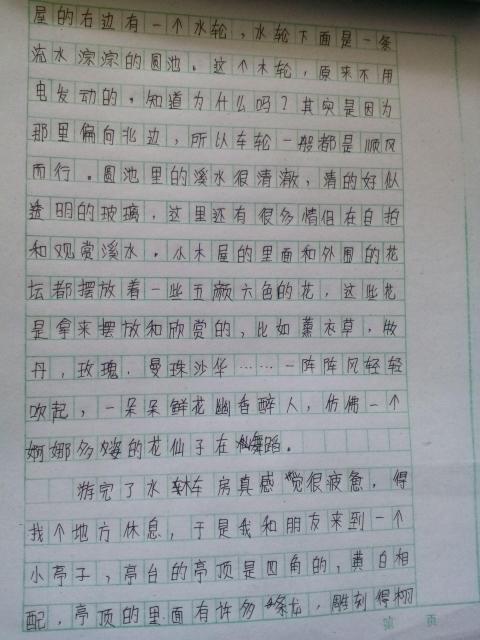 屋的右边有一个水轮，水轮下面是一条
流水淙淙的圆池。这个木轮，原来不用
电发动的，知道为什么吗？其实是因为
那里偏向北边，所以车轮一般都是顺风
而行。圆池里的溪水很清澈，清的好似
透明的玻璃，这里还有很多情侣在自拍
和观赏溪水。从木屋的里面和外围的花
坛都摆放着一些五颜六色的花，这些花
是拿来摆放和欣赏的，比如薰衣草，牧
丹，玫瑰，曼珠沙华……一阵阵风轻轻
吹起，一朵朵鲜花幽香醉人，仿佛一个
婀娜多姿的花仙子在舞蹈。
游完了水车房真感觉很疲惫，得
找个地方休息，于是我和朋友来到一个
小亭子，亭台的亭顶是四角的，黄白相
配，亭顶的里面有许多条龙，雕刻得栩
第 页